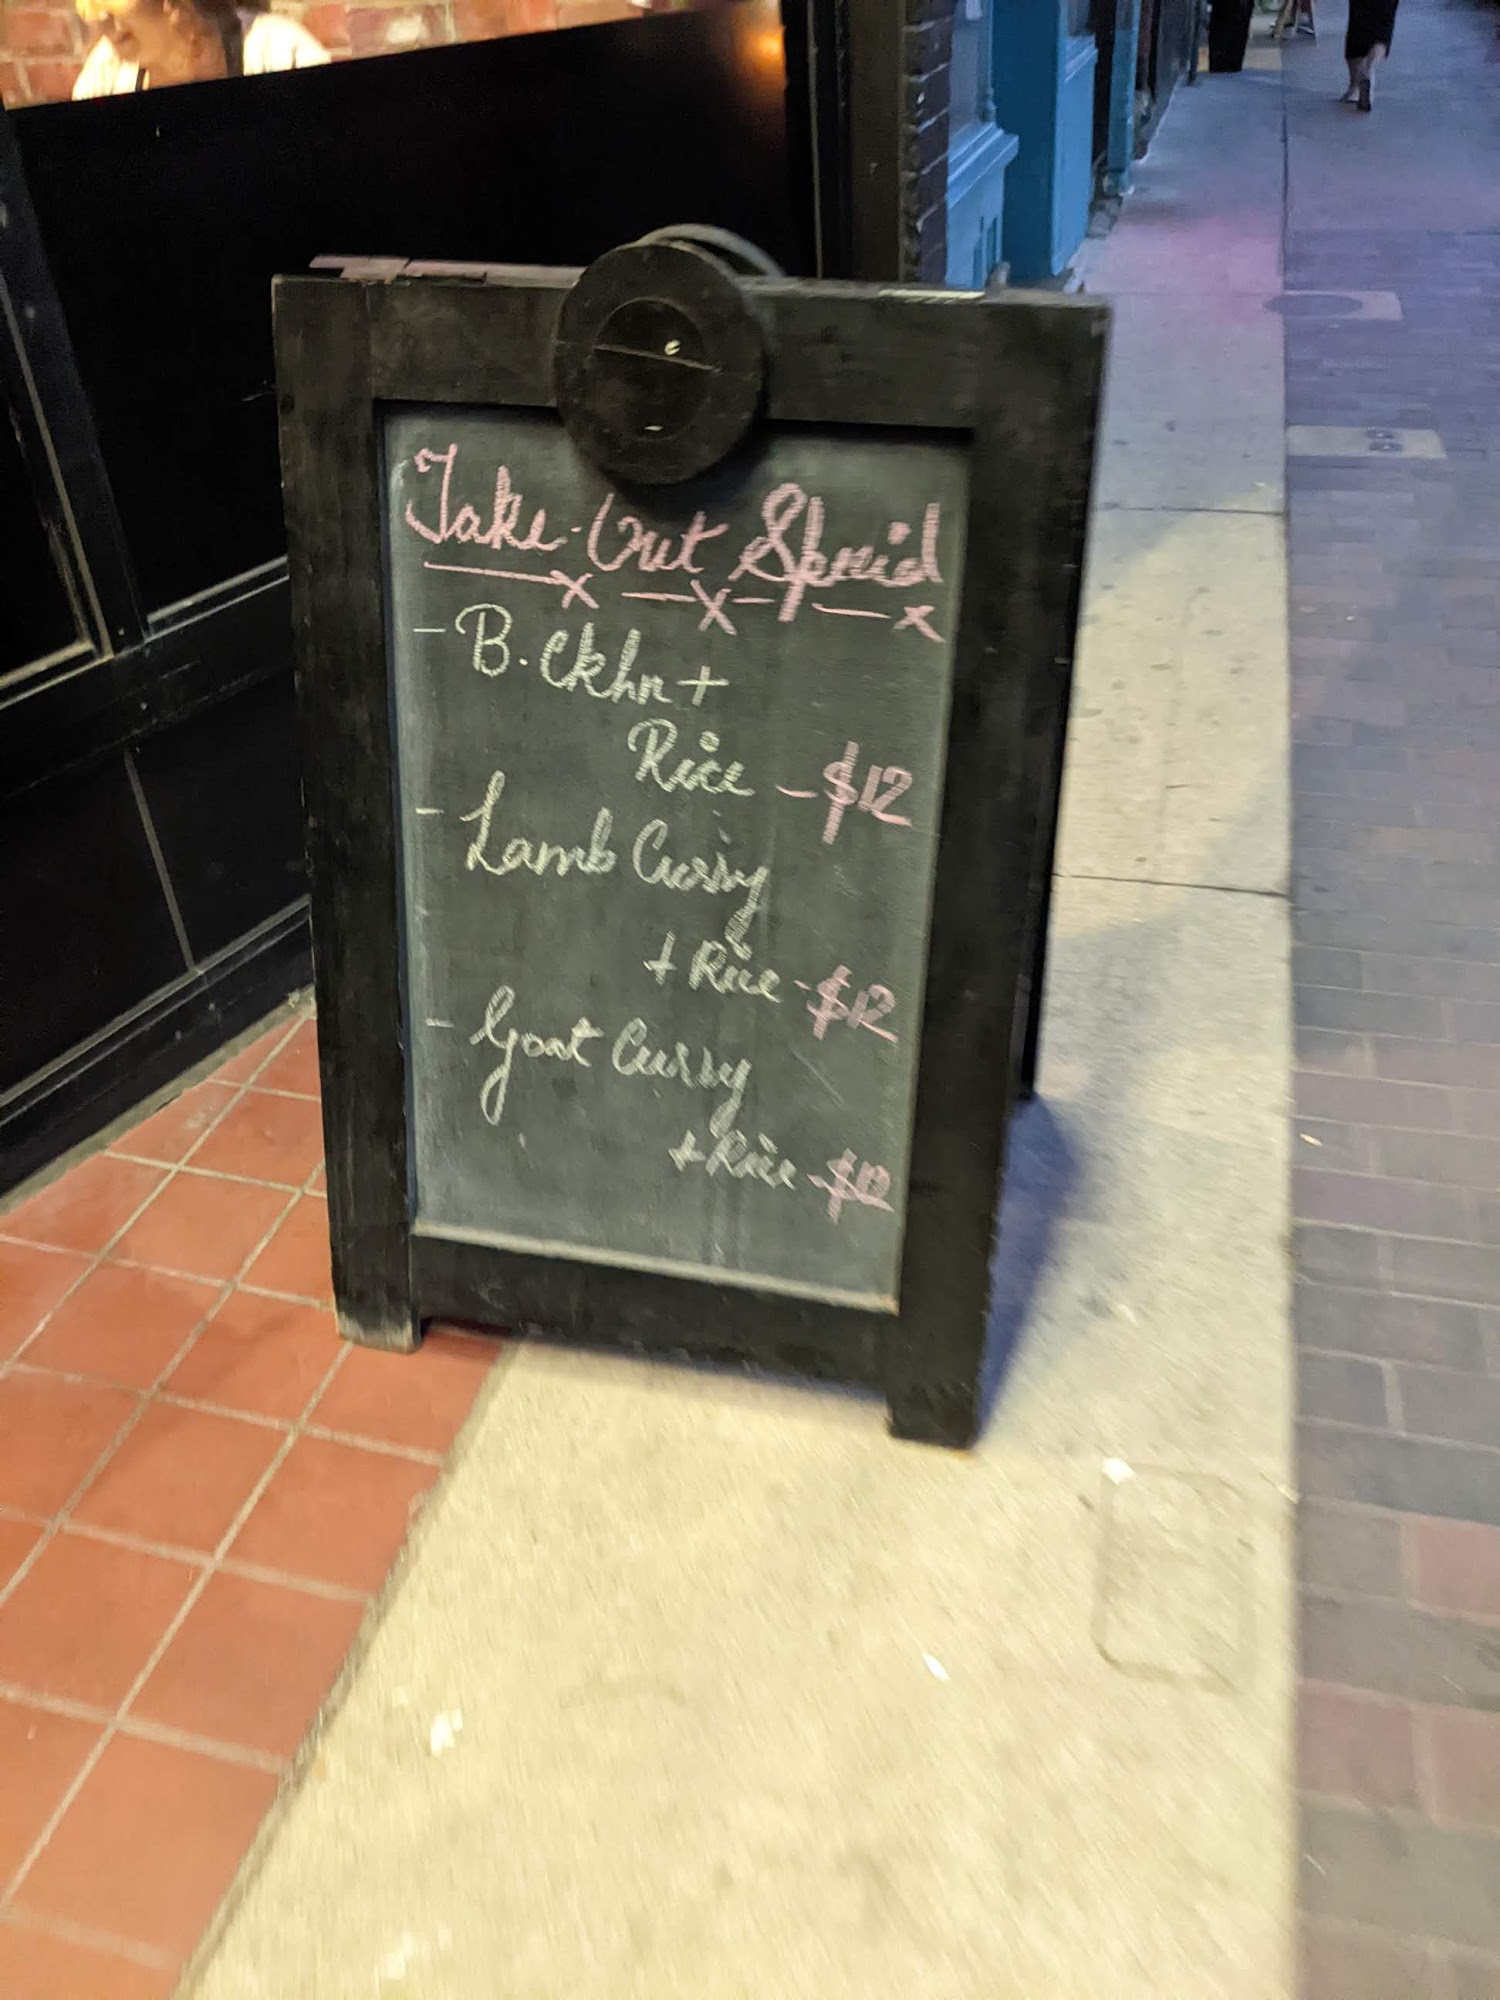 Take-Out Special
- B. Ckhn +
Rice - $12
- Lamb Curry
+ Rice - $12
- Goat Curry
+ Rice - $12